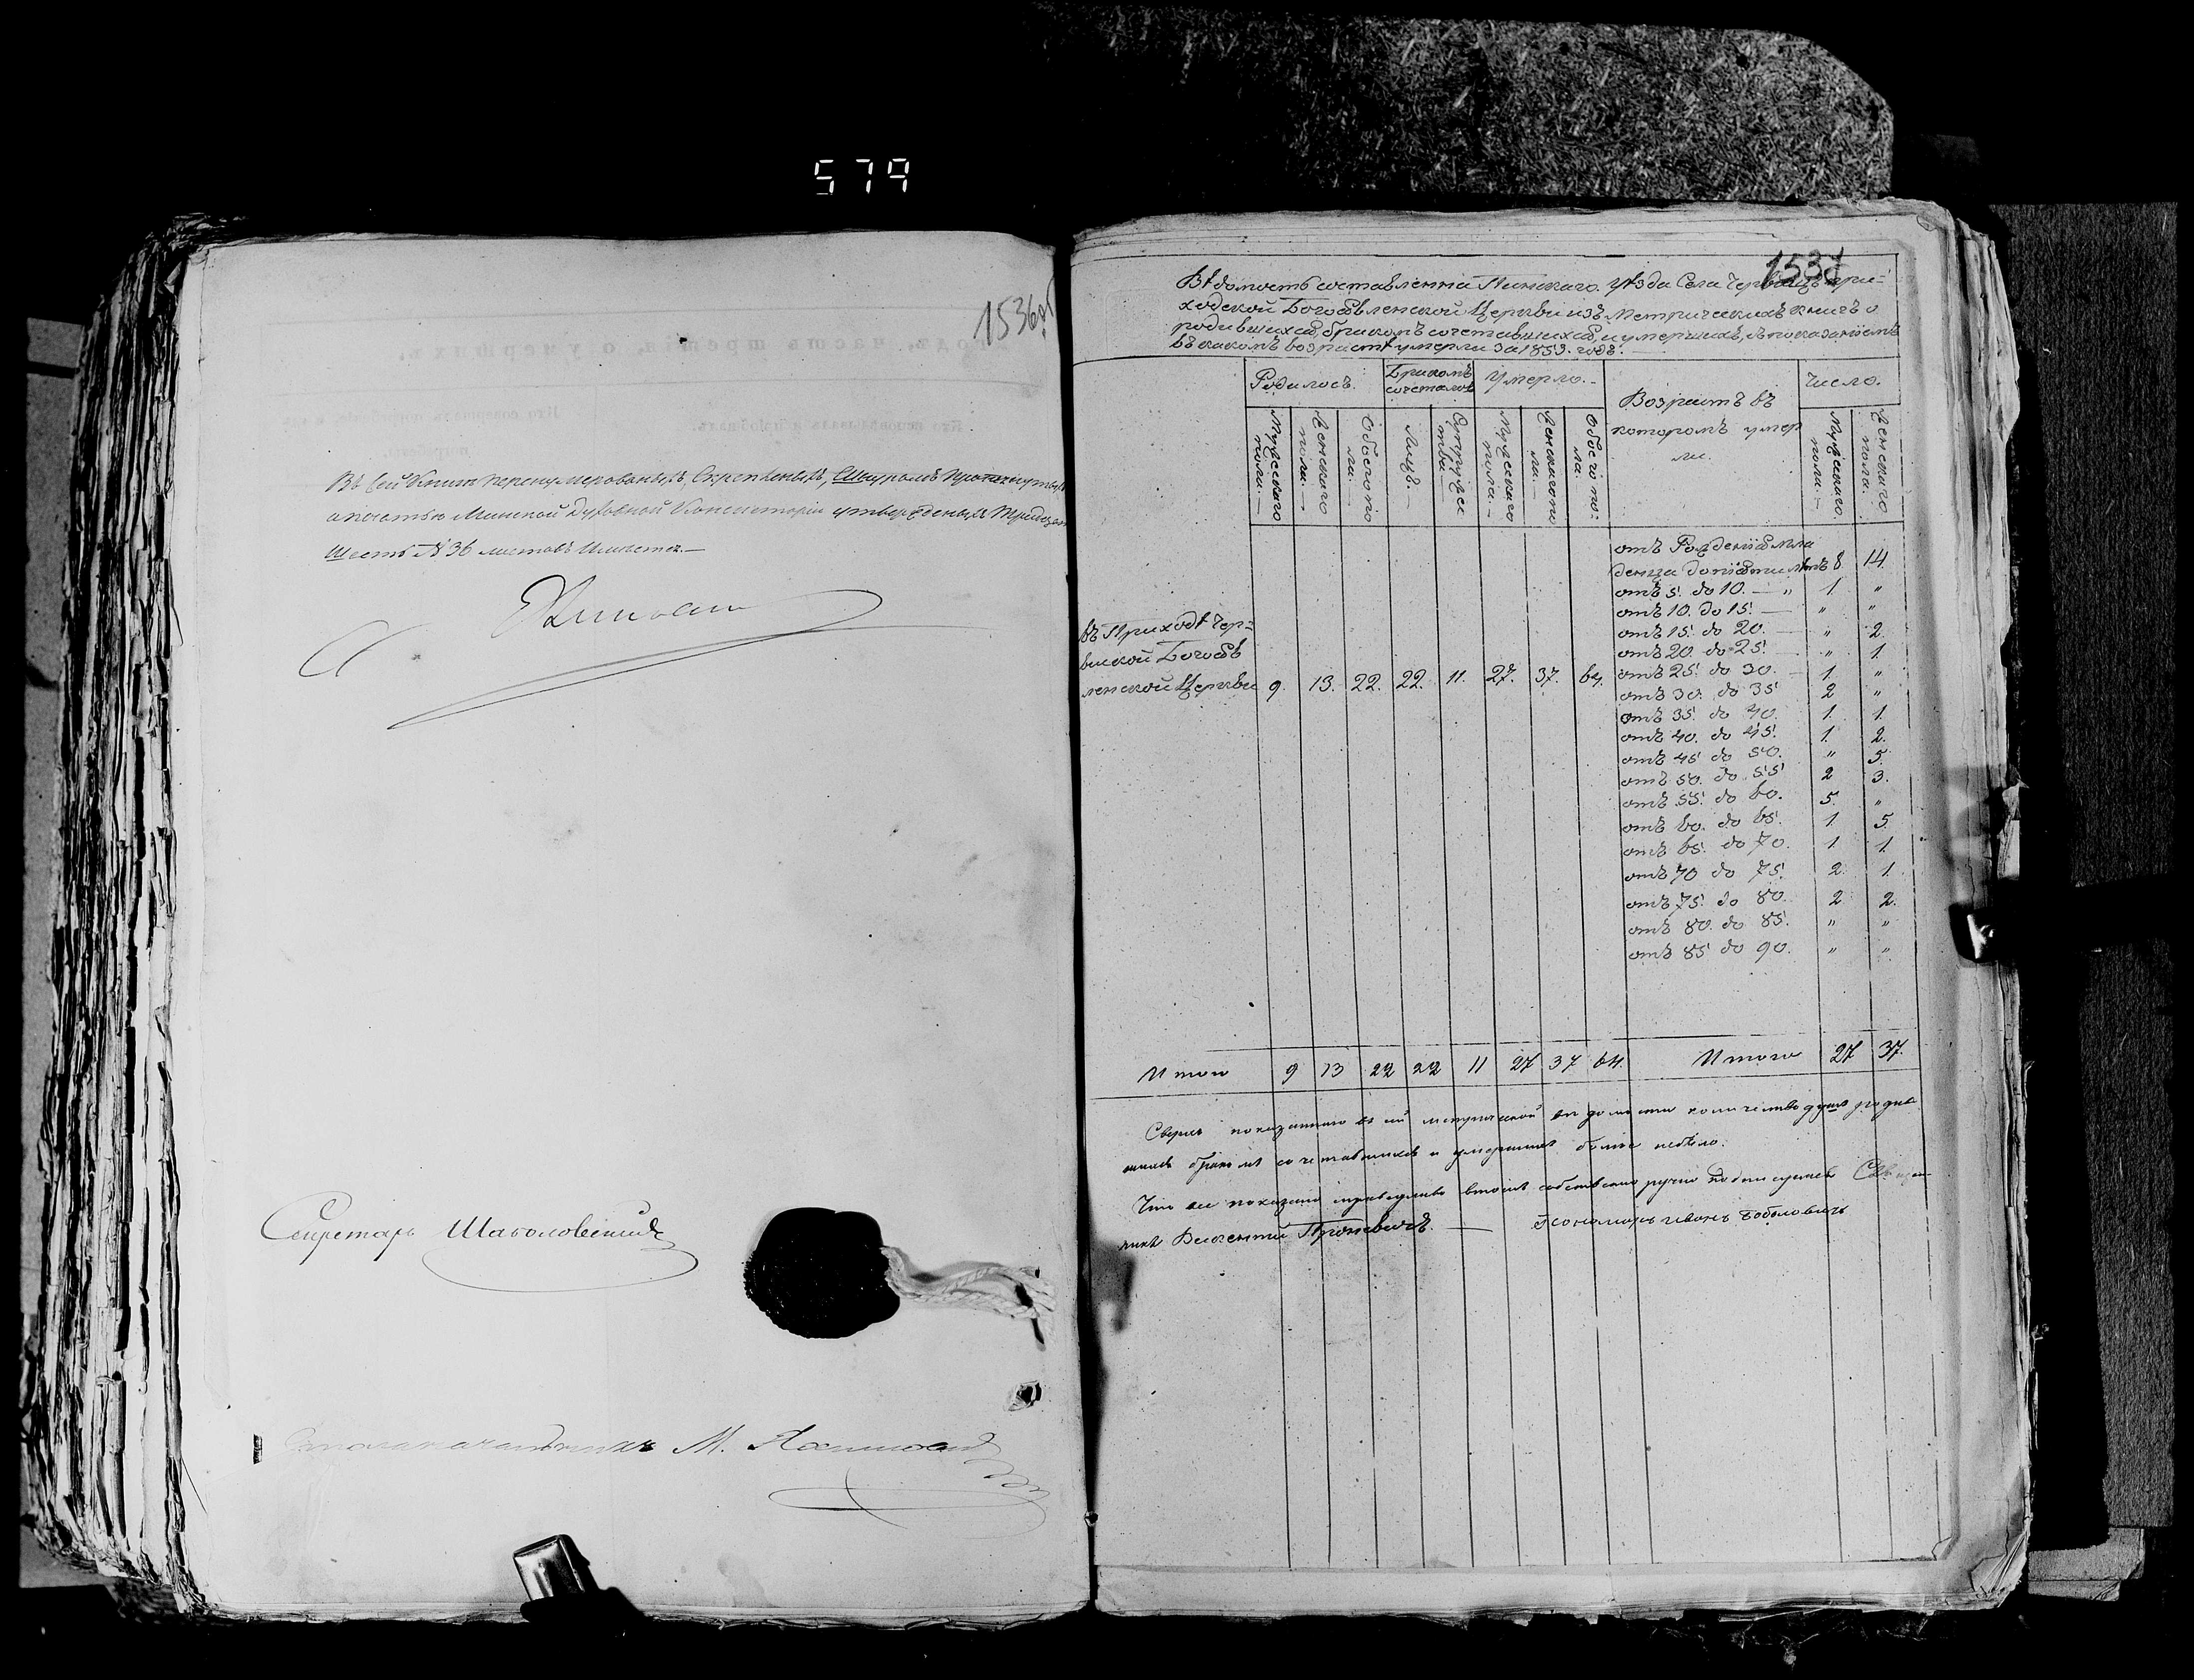 579
1536об
Въ сей книгѣ перенумерованныхъ, скрепленныхъ, Шнуромъ протянутыхъ
а печатью Минской Духовной Консисторіи утвержденныхъ Тридцать
Шесть №36 листовъ Имѣется.—
Секретарь Шаболовскій
Столоначальникъ М.
1537
Вѣдомость составленна Пинскаго уѣзда Села Червищъ При-
ходской Богоявленской Церкви изъ Метрическихъ книгъ о
родившихся, бракомъ сочетавшихся, и умершихъ, съ показаніемъ
въ какомъ возрастѣ умерли за 1853. годъ.
Родилось. Бракомъ сочеталось Умерло.- Возрастъ въ которомъ умерли. Число.
Мужескаго пола.— Женскаго пола.— Обоего пола.— Лицъ.— Супружества.— Мужескаго пола.— Женскаго пола.— Обоего пола. Мужескаго пола.— Женскаго пола.
отъ Рожденія мла
денца до пяти лѣтъ 8 14.
отъ 5. до 10. — „ 1. „
отъ 10. до 15. — „ „
отъ 15. до 20. — „ 2.
отъ 20. до 25. — „ 1.
въ Приходѣ Чер-
виской Богояв
ленской Церкви 9. 13. 22. 22. 11. 27. 37. 64.
отъ 25. до 30. 1. „
отъ 30. до 35 2 „
отъ 35. до 40. 1. 1.
отъ 40. до 45. 1. 2.
отъ 45 до 50. „ 5.
отъ 50. до 55 2 3.
отъ 55. до 60. 5. „
отъ 60. до 65. 1. 5.
отъ 65. до 70. 1 1.
отъ 70 до 75. 2. 1.
отъ 75. до 80. 2 2.
отъ 80. до 85. „ „
отъ 85 до 90. „ „
Итого 9 13 22 22 11 27 37 64. Итого 27 37.
Сверхъ показаннаго въ сей метрической вѣдомости количества душъ родив
шихся бракомъ сочетавшихся и умершихъ болѣе небыло.
Что все показано справедливо въ томъ собственноручно подписуемся Священ-
никъ Викентій Проневичъ. — Пономарь Иванъ Бобыловичъ